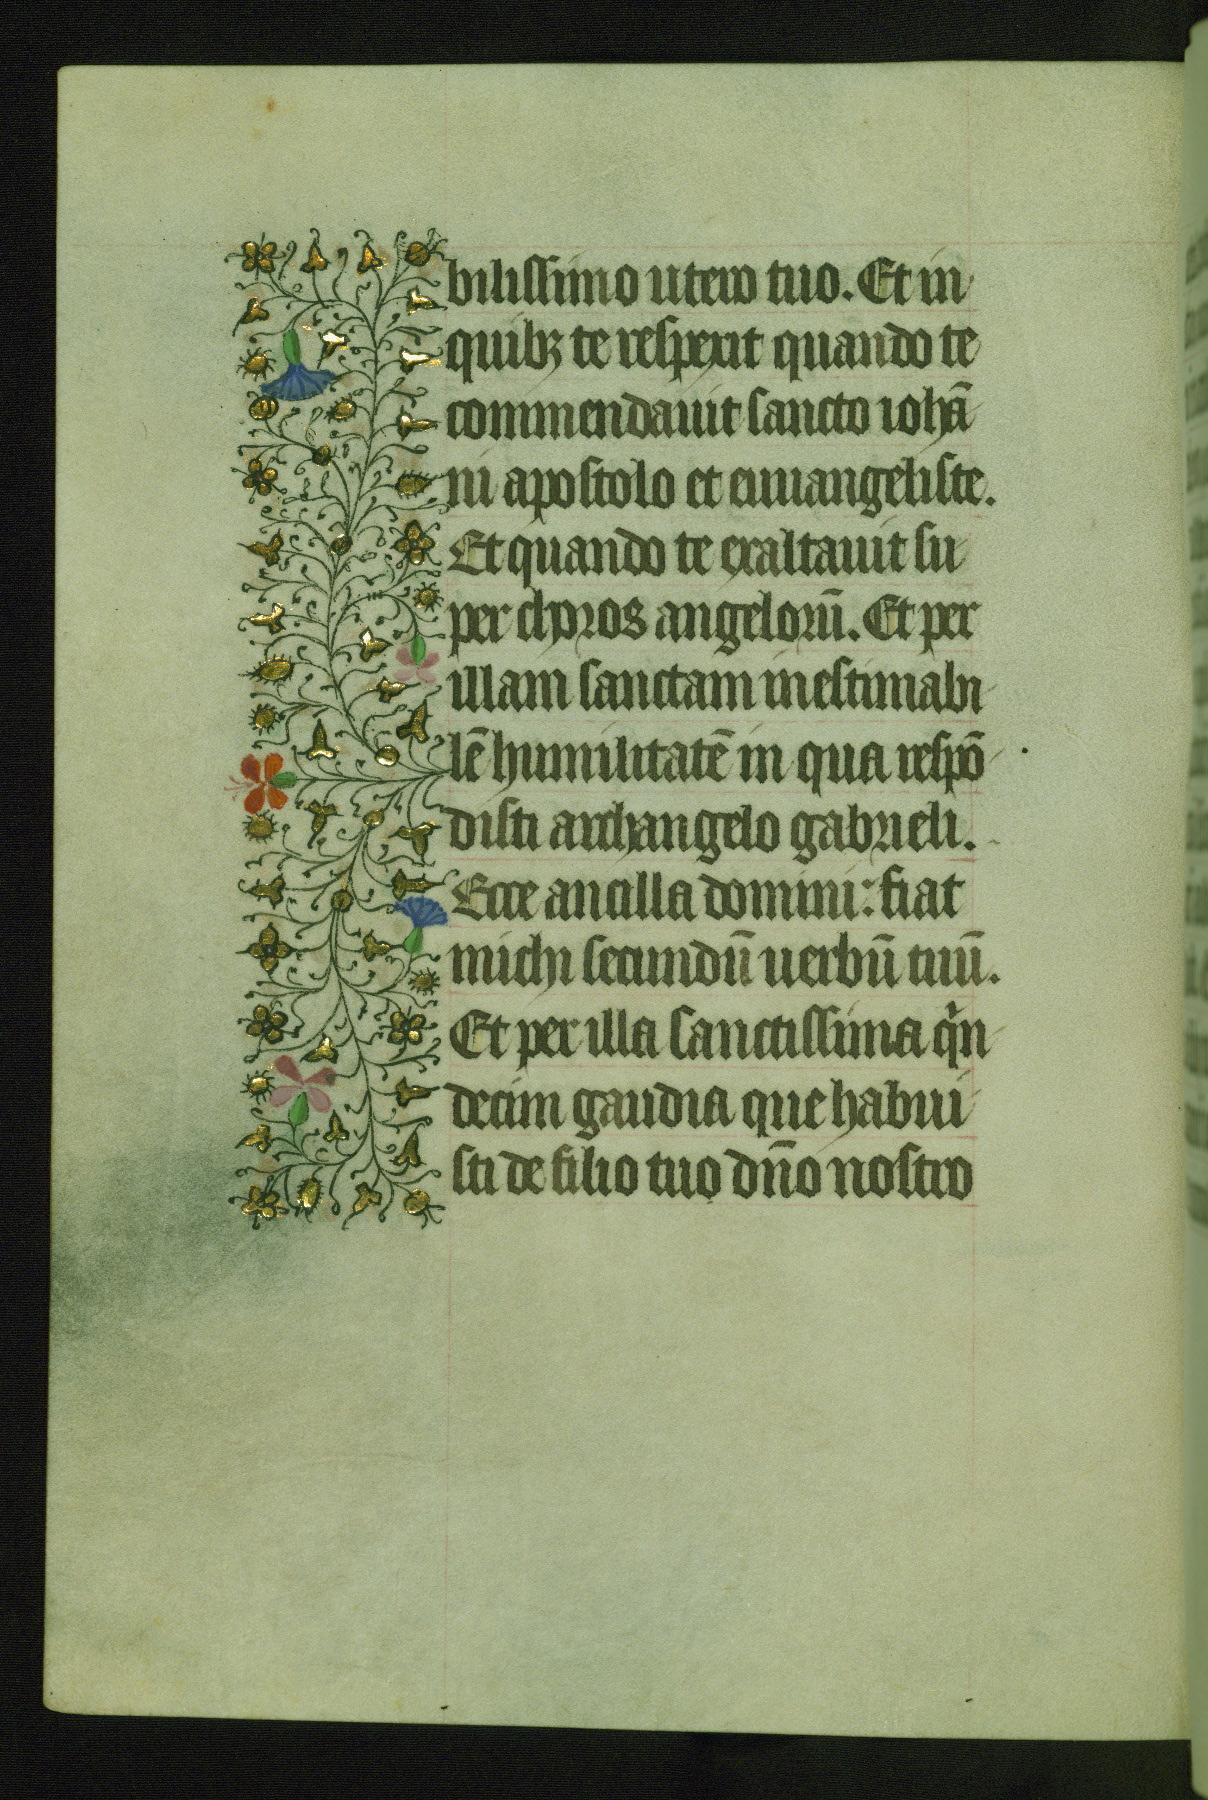 bilissimo utero tuo. Et in
quibꝫ te respexit quando te
commendauit sancto iohā
ni apostolo et euuangeliste.
Et quando te exaltauit su
per choros angelorū. Et per
illam sanctam inestimabi
lē humilitatē in qua respō
disti archangelo gabrieli.
Ecce ancilla domini: fiat
michi secundū uerbū tuū.
Et per illa sanctissima qͥn
decim gaudia que habui
sti de filio tuo dn̄o nostro